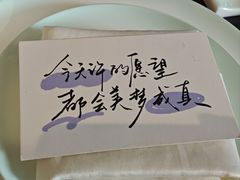 今天许的愿望
都会美梦成真